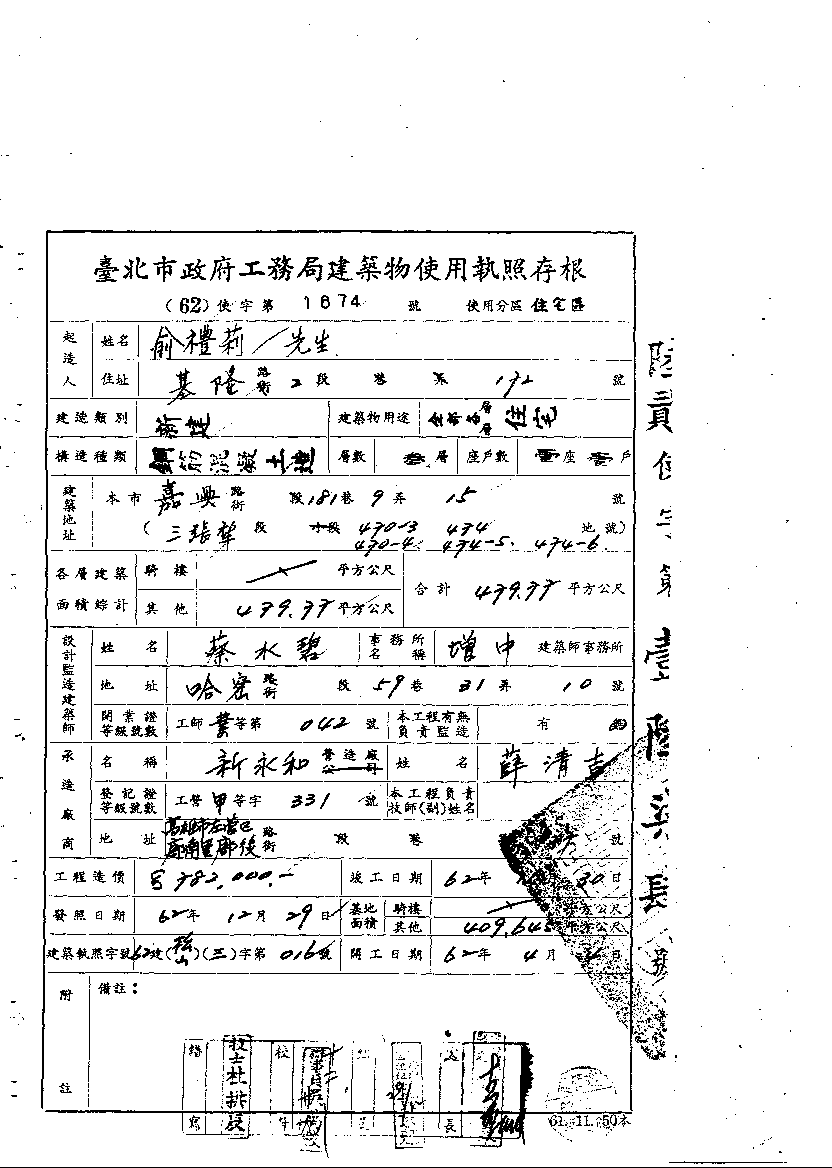 臺北市政府工務局建築物使用執照存根
(62)使字第 1674 號 使用分區 住宅區
起造人 姓名 俞禮莉 / 先生
住址 基隆路街 2 段 巷 弄 172 號
建造類別 新建 建築物用途 全部各層層住宅
構造種類 鋼筋混凝土造 層數 叁層 座戶數 壹座壹戶
建築地址 本市 嘉興路街 段 181 巷 9 弄 15 號
(三張犂段 小段 470-3 474 地號)
470-4. 474-5. 474-6
各層建築面積綜計 騎樓 平方公尺
其他 479.77 平方公尺 合計 479.77 平方公尺
設計監造建築師 姓名 蔡水碧 事務所名稱 增中 建築師事務所
地址 哈密路街 段 59 巷 31 弄 10 號
開業證等級號數 工師 等第 042 號 本工程有無負責監造 有
承造廠商 名稱 新永和 營造廠公司 姓名 薛清吉
登記證等級號數 工營甲等字 331 號 本工程負責技師(副)姓名
地址 高雄市左營區廍南里廍後路街 段 巷 號
工程造價 782,000.- 竣工日期 62年 30日
發照日期 62年 12月 29日 基地面積 騎樓 平方公尺
其他 409.645 平方公尺
建築執照字號 62建(松山)(三)字第 016 號 開工日期 62年 4月 日
附註 備註:
繕寫 技士杜排長 校
長
61.11.50本
陸貳使字第壹陸柒 號